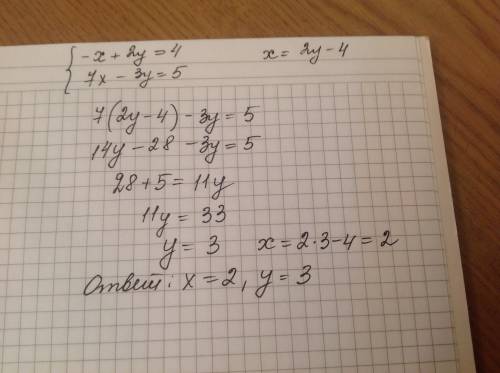 { -x + 2y = 4    x = 2y - 4
7x - 3y = 5
7(2y - 4) - 3y = 5
14y - 28 - 3y = 5
28 + 5 = 11y
11y = 33
y = 3    x = 2·3 - 4 = 2
Ответ: x = 2, y = 3